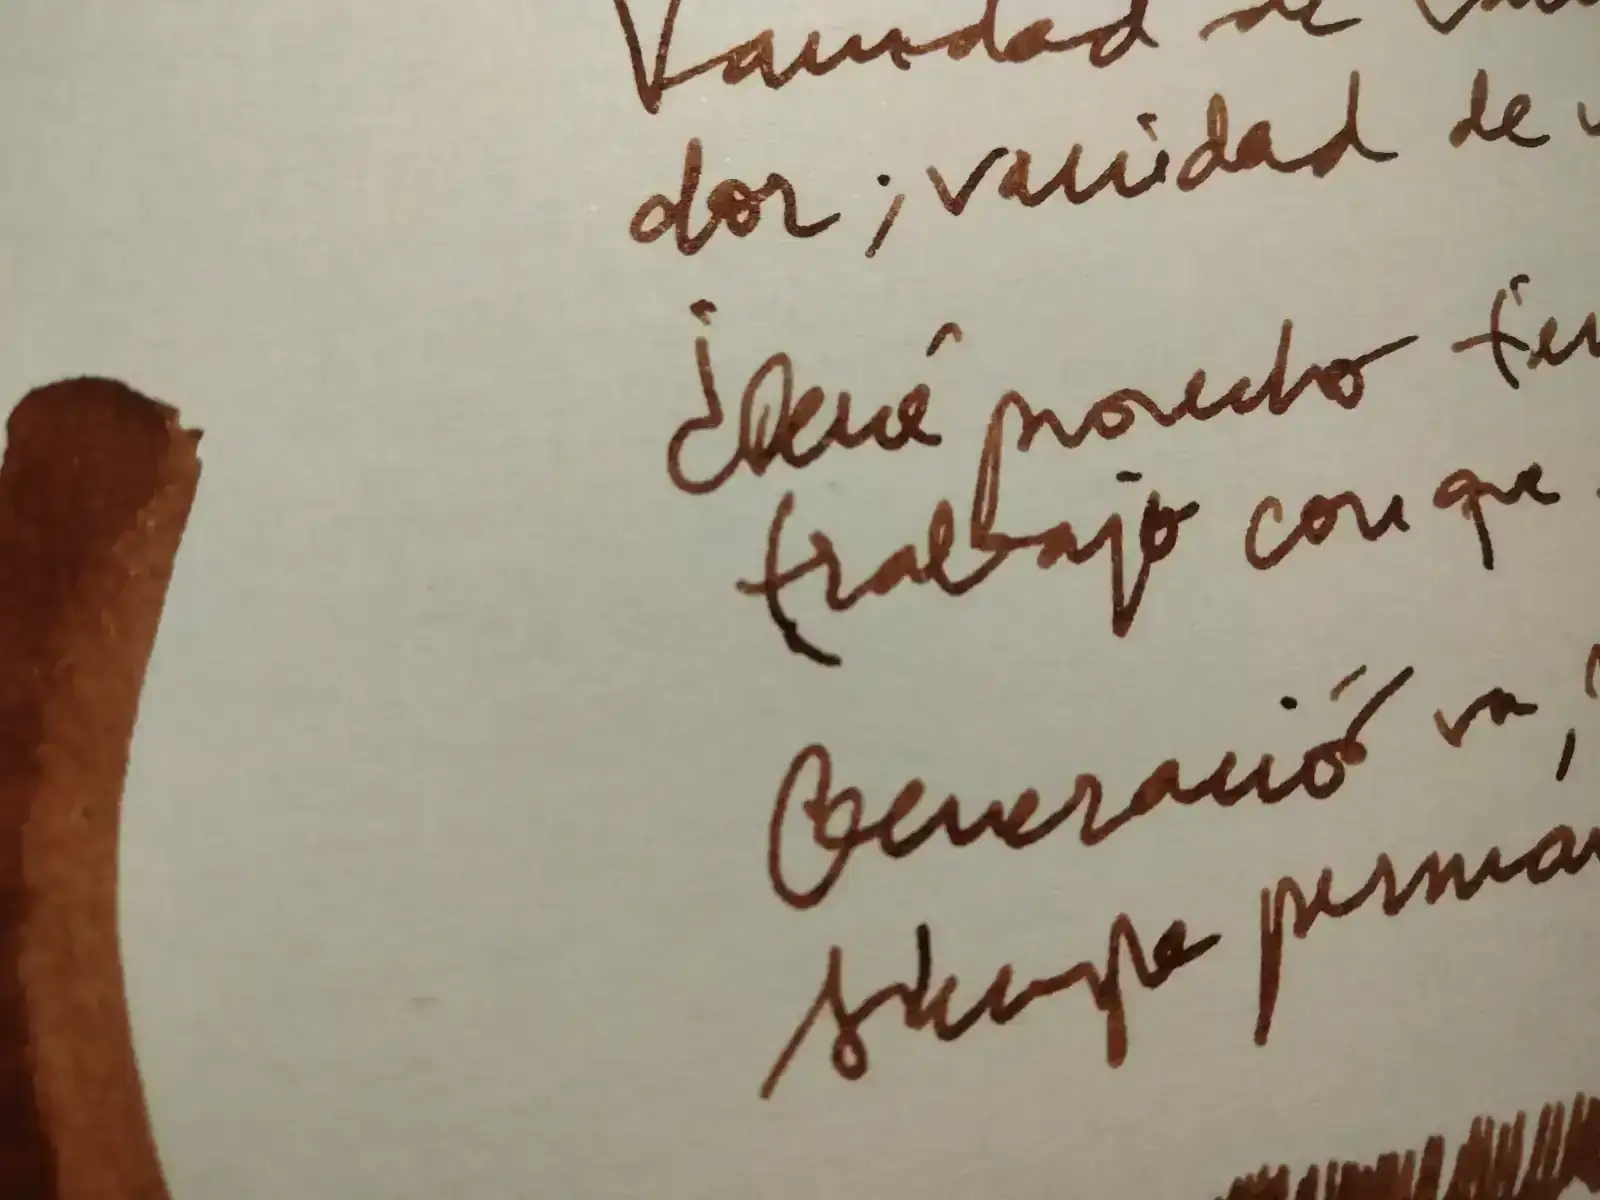 Vanidad de
dor; vanidad de
¿Qué provecho
trabajo con que
Generació va,
siempre